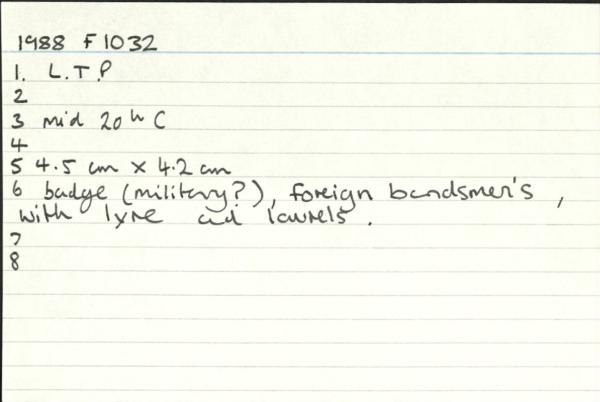 1988 F1032
1. L.T.P
2
3 mid 20th C
4
5 4.5 cm x 4.2 cm
6 badge (military?), foreign bandsmen's,
with lyre and laurels.
7
8